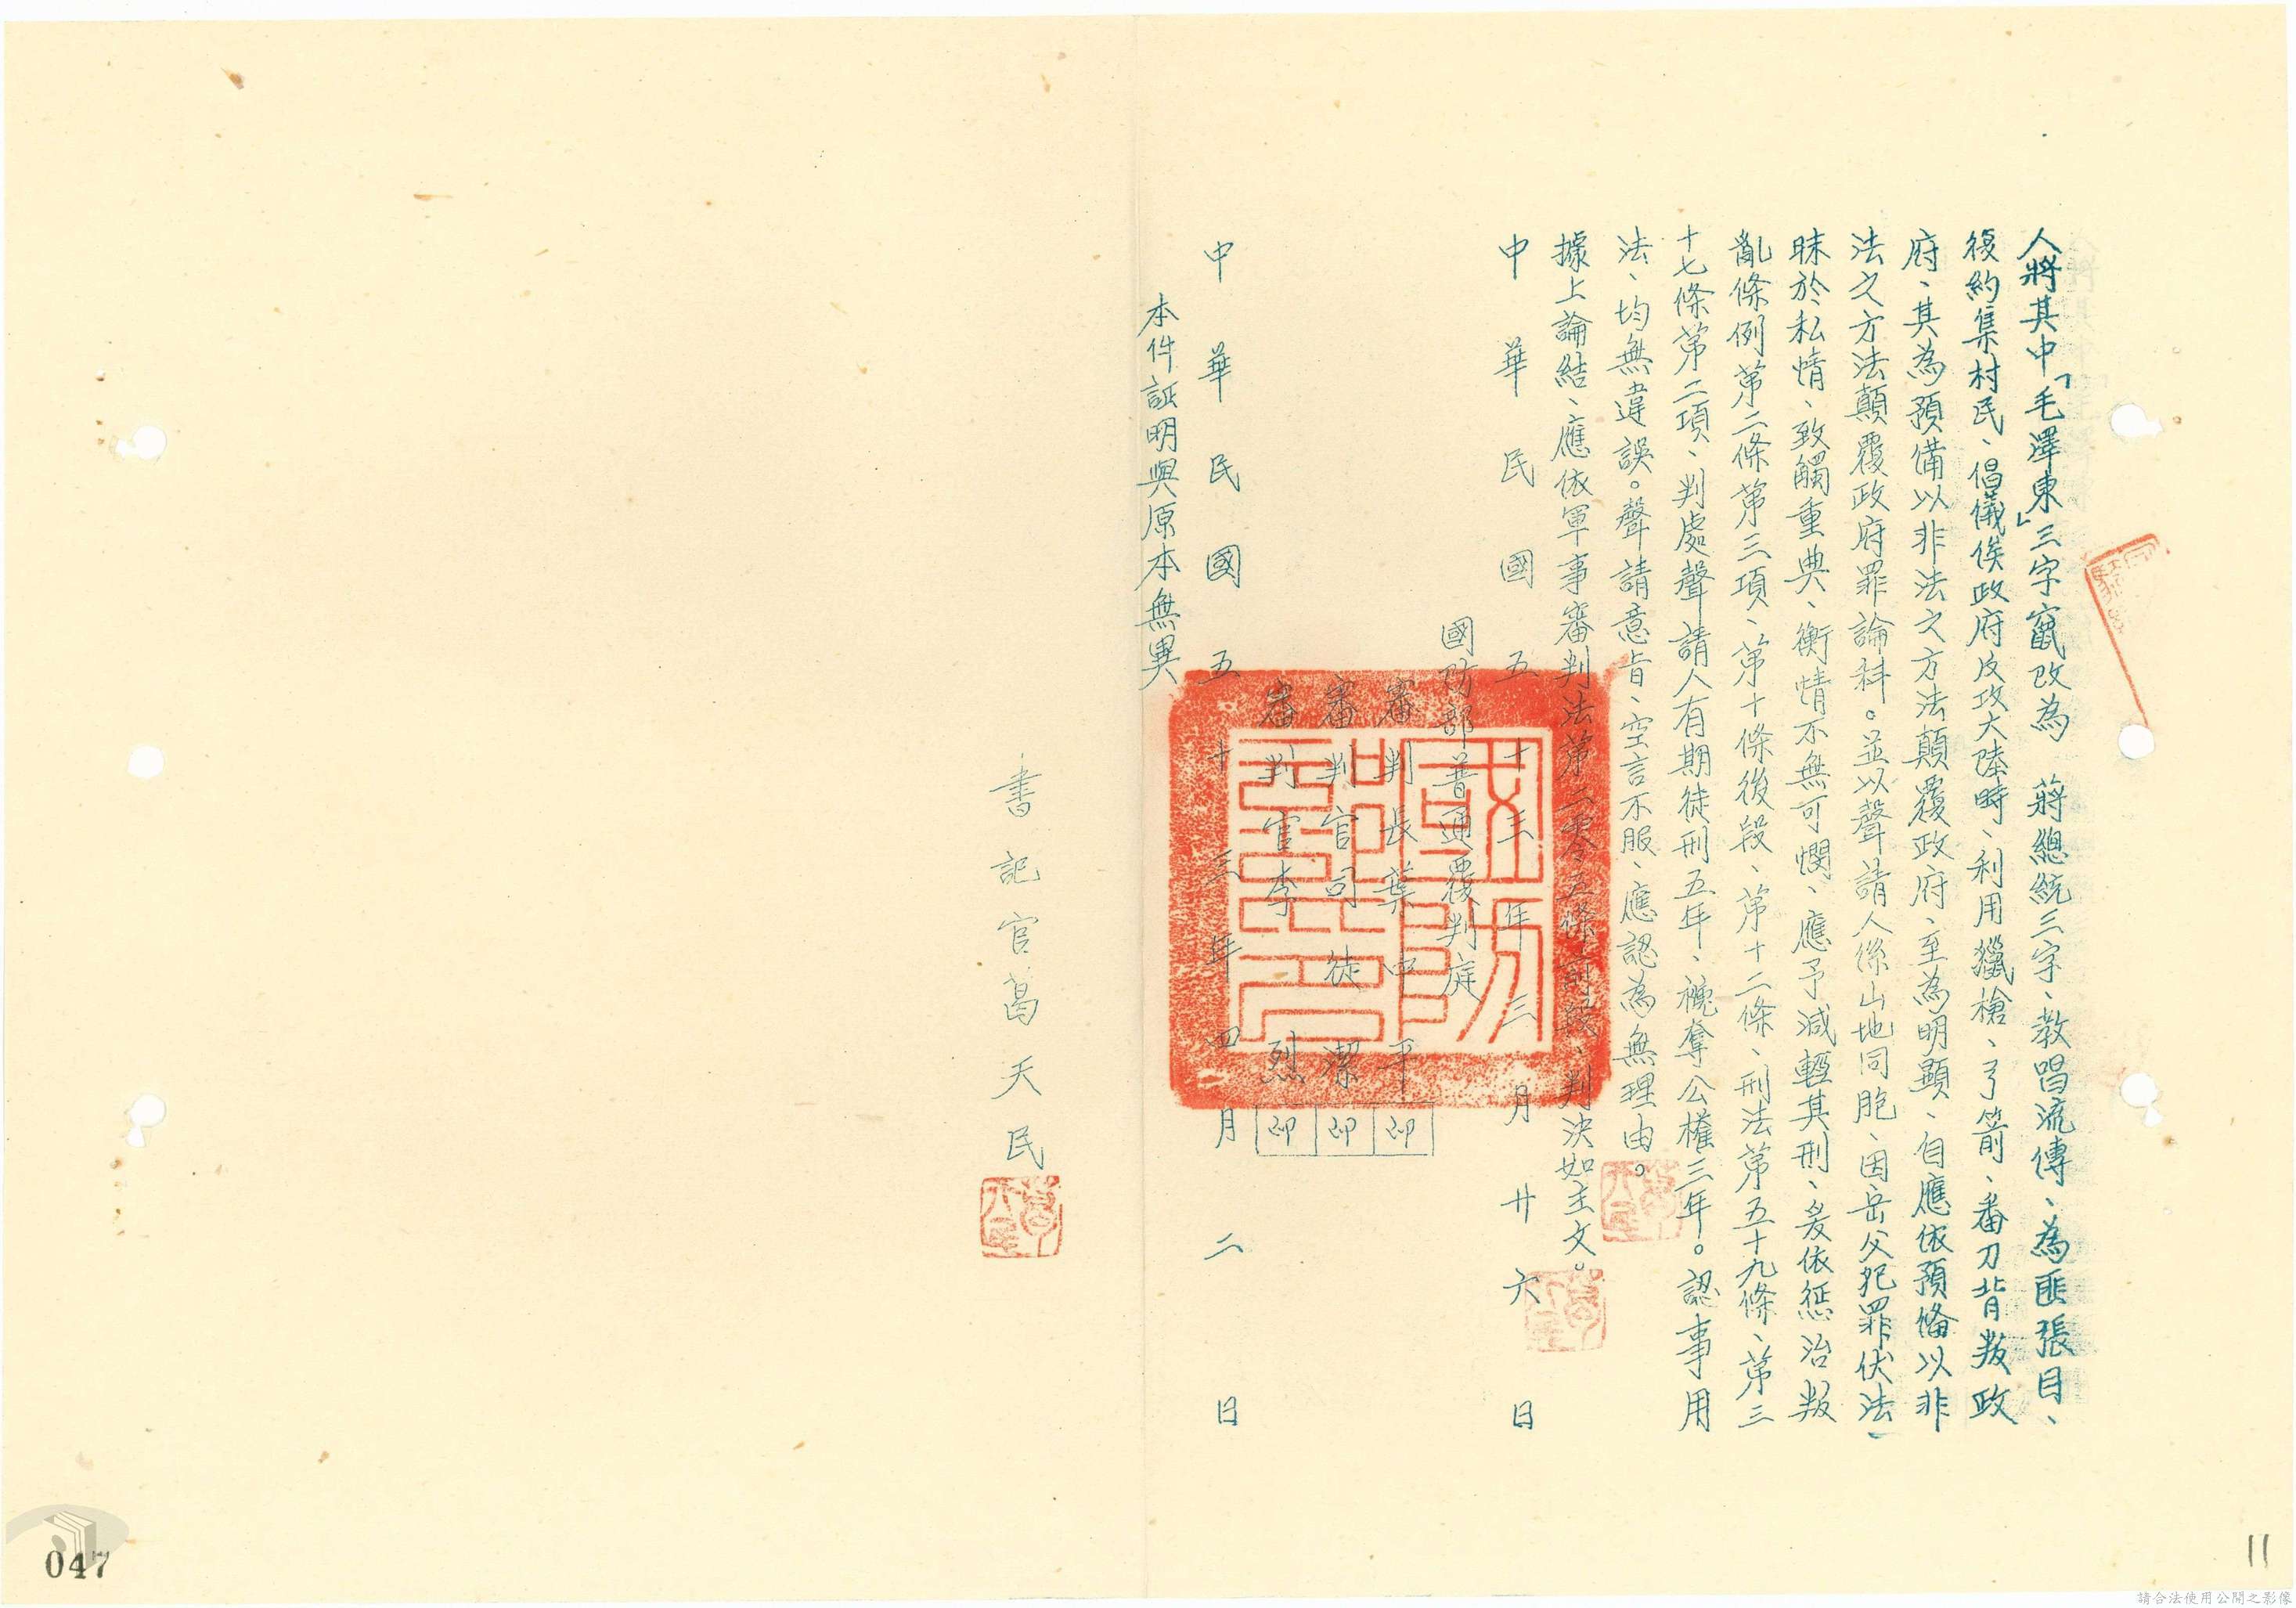 人將其中「毛澤東」三字竄改為　蔣總統三字、教唱流傳、為匪張目、
後約集村民、倡儀俟政府反攻大陸時、利用獵槍、弓箭、番刀背叛政
府、其為預備以非法之方法顛覆政府、至為明顯、自應依預備以非
法之方法顛覆政府罪論科。並以聲請人係山地同胞、因岳父犯罪伏法、
昧於私情、致觸重典、衡情不無可憫、應予減輕其刑、爰依懲治叛
亂條例第二條第三項、第十條後段、第十二條、刑法第五十九條、第三
十七條第二項、判處聲請人有期徒刑五年、褫奪公權三年。認事用
法、均無違誤。聲請意旨、空言不服、應認為無理由。
據上論結、應依軍事審判法第二零五條前段、判決如主文。
中華民國五十三年三月廿六日
國防部普通覆判庭
審判長葉中平印
審判官司徒潔印
審判官李烈印
中華民國五十三年四月二日
本件証明與原本無異
書記官葛天民
047
11
請合法使用公開之影像